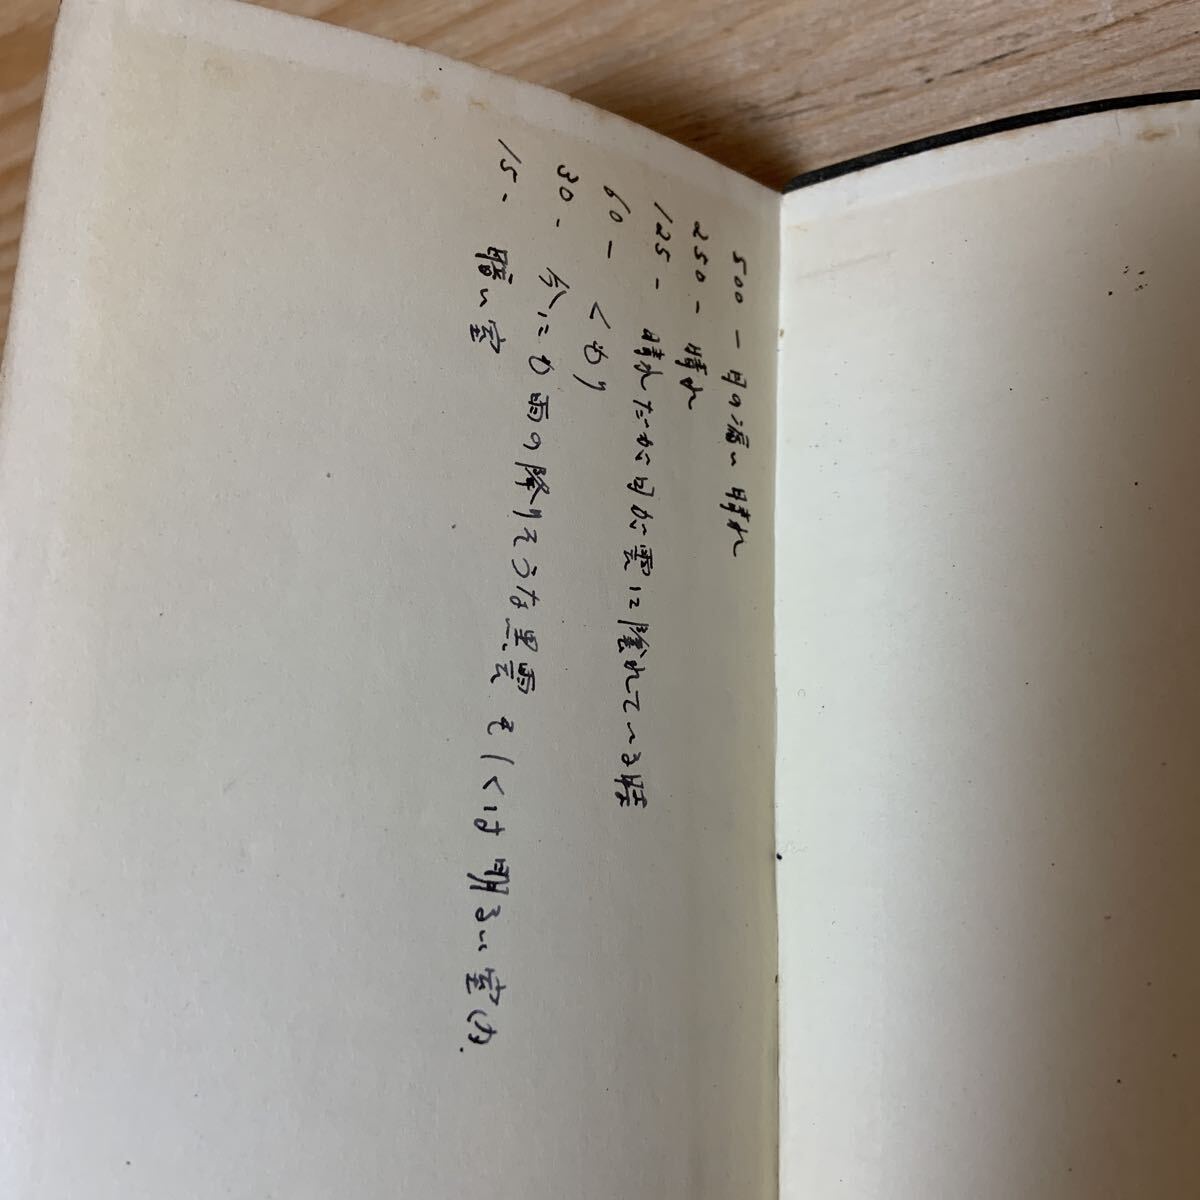 500 - 日の濃い晴れ
250 - 晴れ
125 - 晴れだが日が雲に陰れている時
60 - くもり
30 - 今にも雨の降りそうな黒雲 もしくは明るい室内.
15 - 暗い室